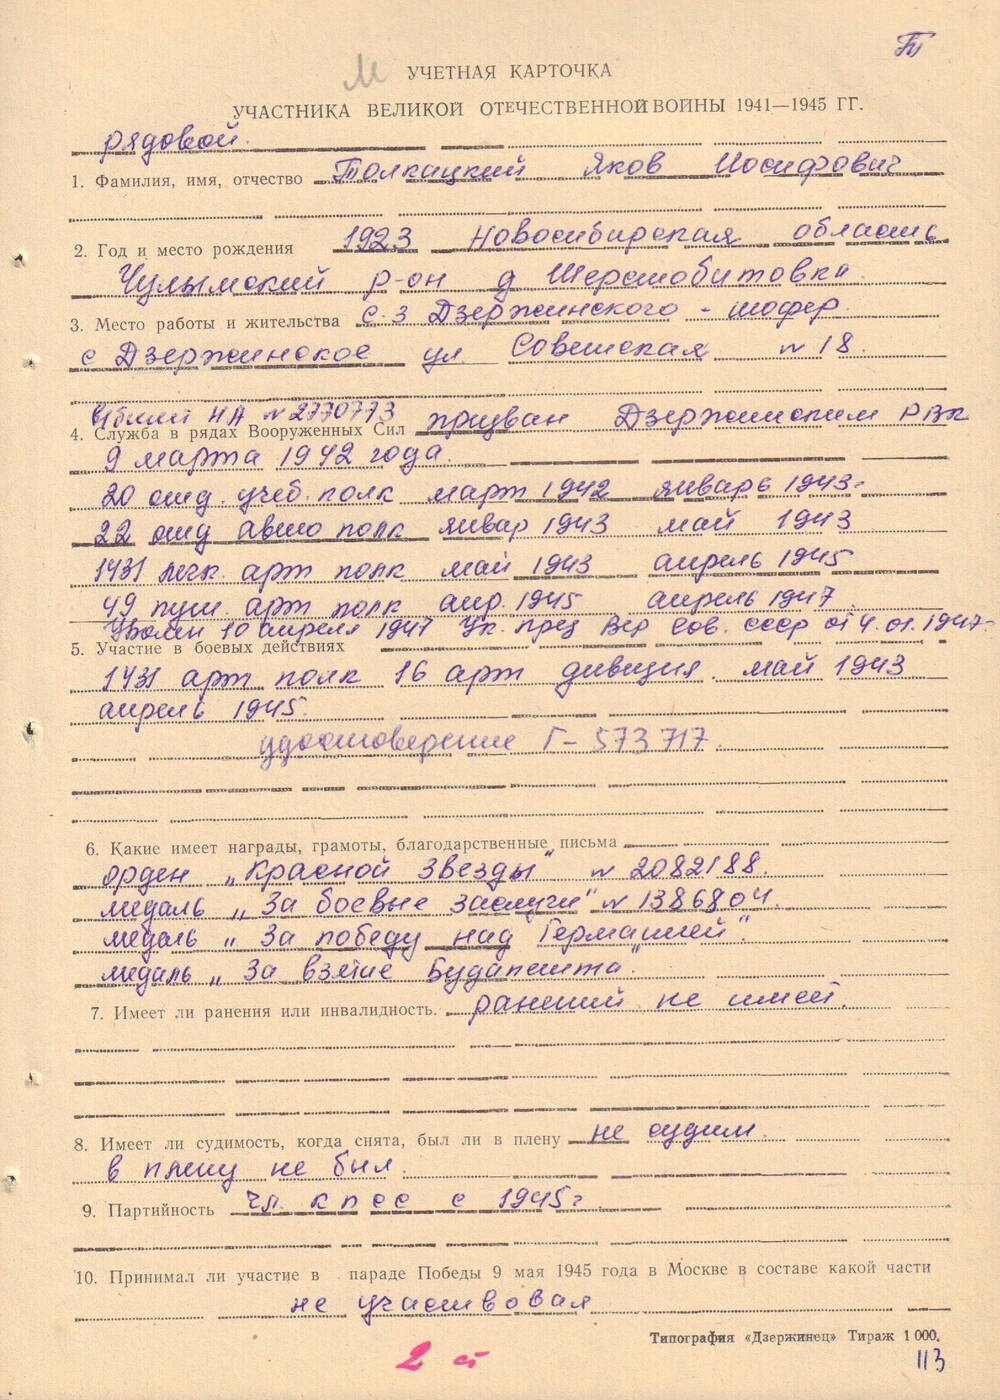 М УЧЕТНАЯ КАРТОЧКА
УЧАСТНИКА ВЕЛИКОЙ ОТЕЧЕСТВЕННОЙ ВОЙНЫ 1941—1945 ГГ.
рядовой.
1. Фамилия, имя, отчество Толкацкий Яков Иосифович
2. Год и место рождения 1923 Новосибирская область
Чулымский р-он д Шерстобитовка.
3. Место работы и жительства с-з Дзержинского - шофер.
с Дзержинское ул. Советская N 18.
в/билет НД N 2770773
4. Служба в рядах Вооруженных Сил призван Дзержинским РВК
9 марта 1942 года.
20 отд. учеб. полк март 1942 январь 1943.
22 отд авто полк январ 1943 май 1943
1431 легк. арт полк май 1943 апрель 1945
49 пуш. арт полк апр. 1945 апрель 1947.
Уволен 10 апреля 1947 Ук. През Вер Сов. СССР от 4.01.1947.
5. Участие в боевых действиях
1431 арт полк 16 арт дивизия. май 1943
апрель 1945.
удостоверение Г-573717.
6. Какие имеет награды, грамоты, благодарственные письма
орден „Красной Звезды" N 2082188.
медаль „За боевые заслуги" N 1386804.
медаль „За победу над Германией".
медаль „За взятие Будапешта".
7. Имеет ли ранения или инвалидность. ранений не имеет.
8. Имеет ли судимость, когда снята, был ли в плену не судим.
в плену не был.
9. Партийность чл. КПСС с 1945 г
10. Принимал ли участие в параде Победы 9 мая 1945 года в Москве в составе какой части
не участвовал
Типография «Дзержинец» Тираж 1 000.
2 ст
113